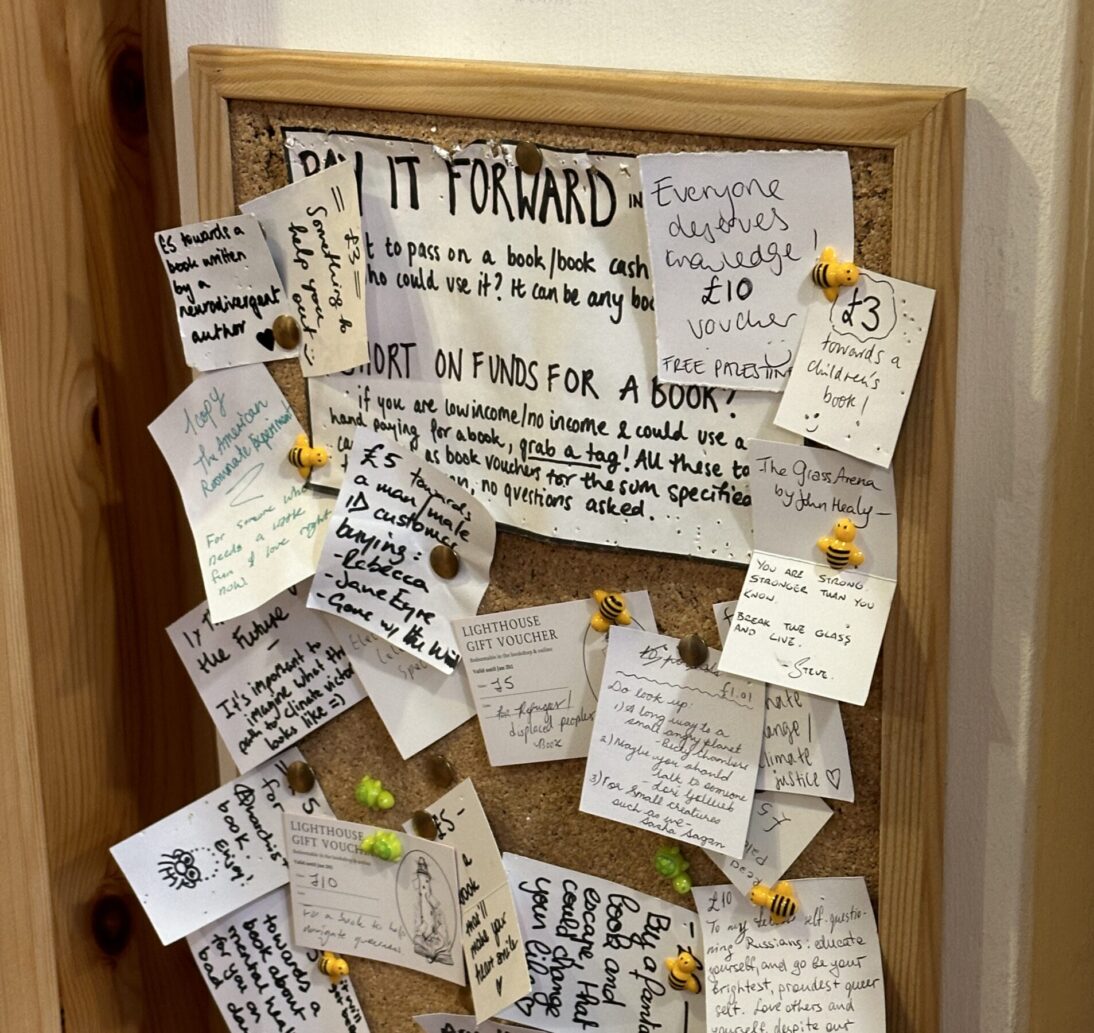 PAY IT FORWARD IN
t to pass on a book/book cash
ho could use it? It can be any boo
SHORT ON FUNDS FOR A BOOK?
if you are low income/no income & could use a
hand paying for a book, grab a tag! All these to
as book vouchers for the sum specified
no questions asked.
£5 towards a
book written
by a
neurodivergent
author ♥
= £3 =
Something to
help you
out :)
Everyone
deserves
knowledge!
£10
voucher
FREE PALESTINE
£3
towards a
children's
book!
:)
1 copy
The American
Roommate Experiment
For someone who
needs a
fun & love right
now!
£5 towards
a man/male
ID customer
buying:
- Rebecca
- Jane Eyre
- Gone w/ the Wind
The Grass Arena
by John Healy—
YOU ARE STRONG.
STRONGER THAN YOU
KNOW.
BREAK THE GLASS
AND LIVE.
- STEVE.
the Future
—
It's important to
imagine what the
path to climate victory
looks like =)
LIGHTHOUSE
GIFT VOUCHER
Redeemable in the bookshop & online
Valid until Jan
- £5
for Refugee/
displaced peoples
Book
£1.01
Do look up:
1) A long way to a
small angry planet
- Becky Chambers
2) Maybe you should
talk to someone
- Lori Gottlieb
3) For small creatures
such as we -
Sasha Sagan
ange/
climate
justice ♡
£5
Read
£5
for
book.
Enjoy!
LIGHTHOUSE
GIFT VOUCHER
Redeemable in the bookshop & online
Valid until Jan
- £10
for a book to help
navigate queerness
£5 -
a
book
that'll
make your
heart smile
♥
Buy a
book and
escape, that
could change
your life ♡
£10
To my self-questio-
ning Russians: educate
yourself, and go be your
brightest, proudest queer
self. Love others and
yourself, despite our
towards a
book about
mental health
for you on
bad